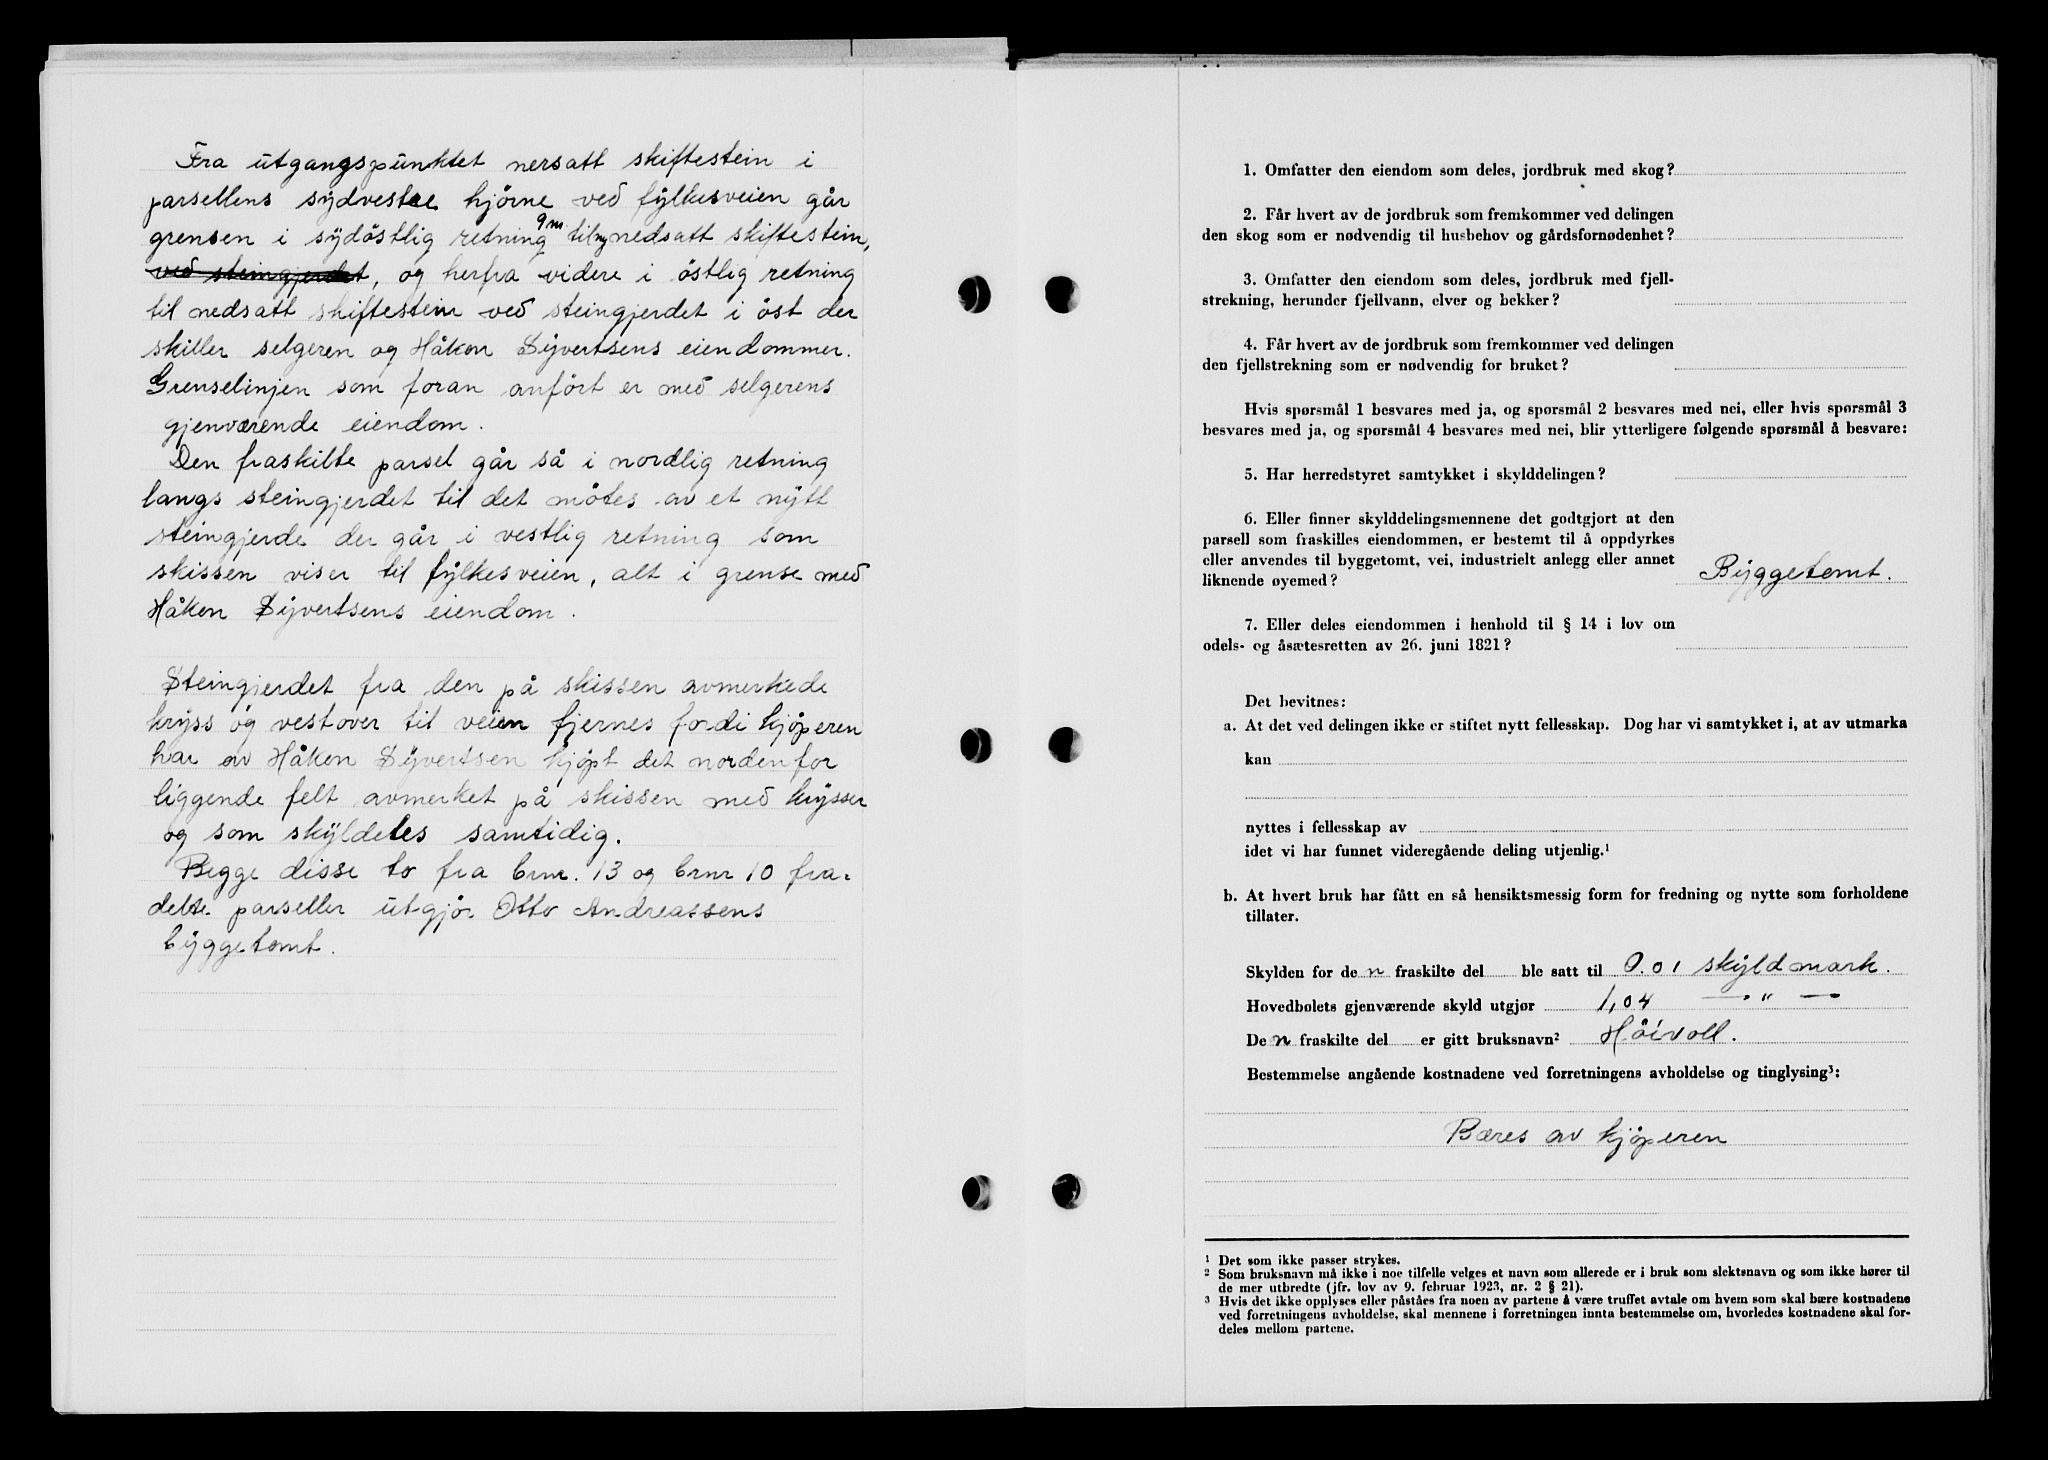 Fra utgangspunktet nersatt skiftestein i
parsellens sydvestre hjörne ved fylkesveien går
grensen i sydöstlig retning 9 m til ny nedsatt skiftestein,
ved steingjerdet, og herfra videre i östlig retning
til nedsatt skiftestein ved steingjerdet i öst der
skiller selgeren og Håkon Syvertsens eiendommer.
Grenselinjen som foran anfört er med selgerens
gjenværende eiendom.
Den fraskilte parsel går så i nordlig retning
langs steingjerdet til det mötes av et nytt
steingjerde der går i vestlig retning som
skissen viser til fylkesveien, alt i grense med
Håkon Syvertsens eiendom.
Steingjerdet fra den på skissen avmerkede
kryss og vestover til veien fjernes fordi kjøperen
har av Håkon Syvertsen kjøpt det nordenfor
liggende felt avmerket på skissen med krysser
og som skyldeles samtidig.
Begge disse to fra bnr. 13 og bnr 10 fra-
delte parseller utgjör Otto Andreassens
byggetomt.
1. Omfatter den eiendom som deles, jordbruk med skog?
2. Får hvert av de jordbruk som fremkommer ved delingen
den skog som er nødvendig til husbehov og gårdsfornødenhet?
3. Omfatter den eiendom som deles, jordbruk med fjell-
strekning, herunder fjellvann, elver og bekker?
4. Får hvert av de jordbruk som fremkommer ved delingen
den fjellstrekning som er nødvendig for bruket?
Hvis spørsmål 1 besvares med ja, og spørsmål 2 besvares med nei, eller hvis spørsmål 3
besvares med ja, og spørsmål 4 besvares med nei, blir ytterligere følgende spørsmål å besvare:
5. Har herredstyret samtykket i skylddelingen?
6. Eller finner skylddelingsmennene det godtgjort at den
parsell som fraskilles eiendommen, er bestemt til å oppdyrkes
eller anvendes til byggetomt, vei, industrielt anlegg eller annet
liknende øyemed? Byggetomt.
7. Eller deles eiendommen i henhold til § 14 i lov om
odels- og åsætesretten av 26. juni 1821?
Det bevitnes:
a. At det ved delingen ikke er stiftet nytt fellesskap. Dog har vi samtykket i, at av utmarka
kan
nyttes i fellesskap av
idet vi har funnet videregående deling utjenlig.¹
b. At hvert bruk har fått en så hensiktsmessig form for fredning og nytte som forholdene
tillater.
Skylden for de n fraskilte del ble satt til 0.01 skyldmark.
Hovedbølets gjenværende skyld utgjør 1,04 — " —
De n fraskilte del er gitt bruksnavn² Höivoll.
Bestemmelse angående kostnadene ved forretningens avholdelse og tinglysing³:
Bæres av kjøperen
¹ Det som ikke passer strykes.
² Som bruksnavn må ikke i noe tilfelle velges et navn som allerede er i bruk som slektsnavn og som ikke hører til
de mer utbredte (jfr. lov av 9. februar 1923, nr. 2 § 21).
³ Hvis det ikke opplyses eller påståes fra noen av partene å være truffet avtale om hvem som skal bære kostnadene
ved forretningens avholdelse, skal mennene i forretningen innta bestemmelse om, hvorledes kostnadene skal for-
deles mellom partene.